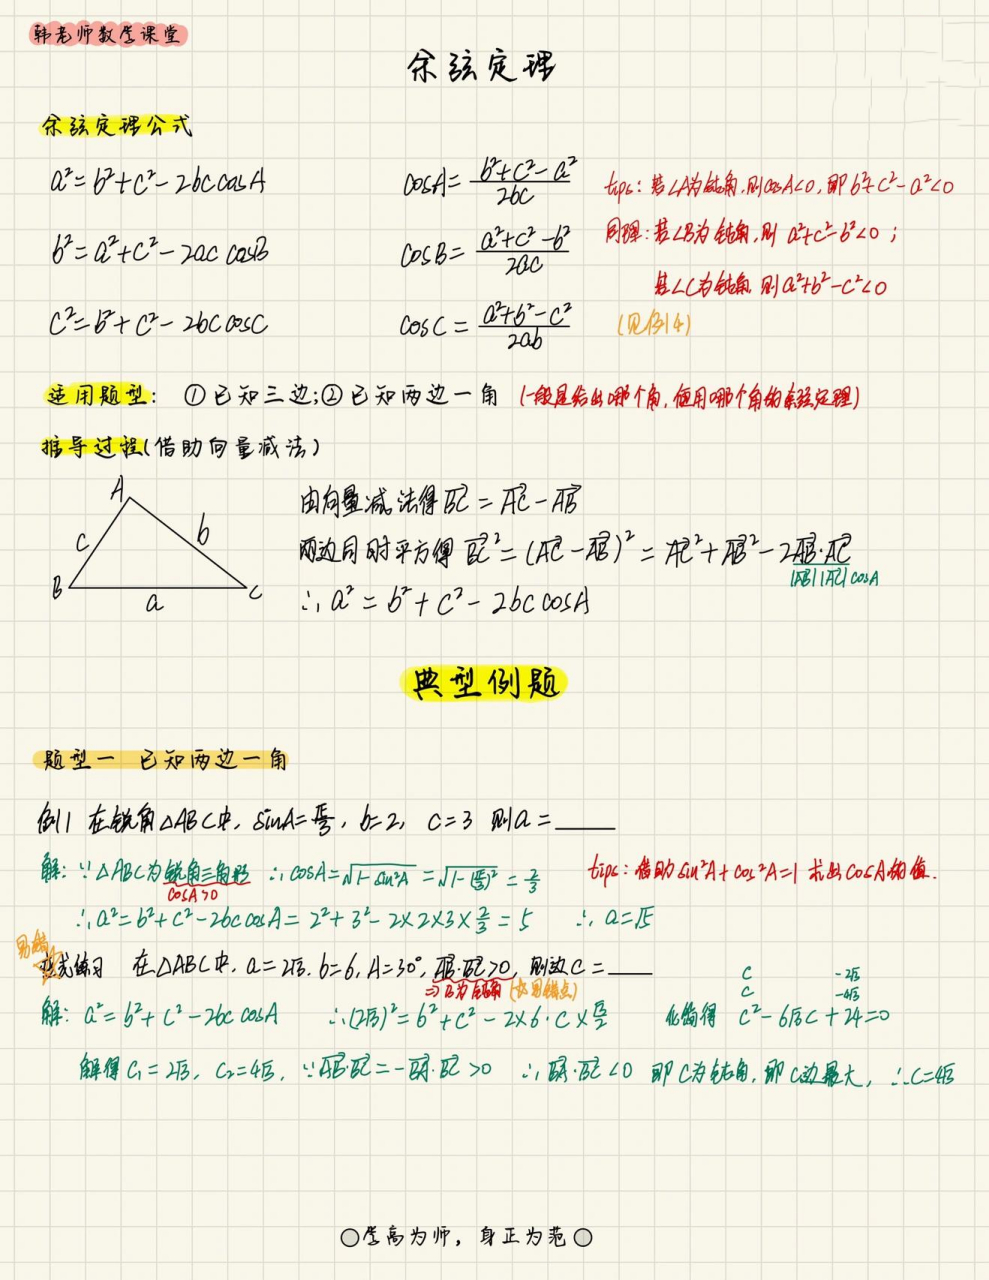 韩老师数学课堂
余弦定理
余弦定理公式
a²=b²+c²-2bccosA cosA=(b²+c²-a²)/2bc tips:若∠A为钝角,则cosA<0,即b²+c²-a²<0
b²=a²+c²-2accosB cosB=(a²+c²-b²)/2ac 同理:若∠B为钝角,则a²+c²-b²<0;
若∠C为钝角,则a²+b²-c²<0
c²=b²+c²-2bccosC cosC=(a²+b²-c²)/2ab (见例4)
适用题型: ①已知三边;②已知两边一角 (一般是给出哪个角,便用哪个角的余弦定理)
推导过程(借助向量减法)
A
c b
B a C
由向量减法得BC→=AC→-AB→
两边同时平方得 BC→²=(AC→-AB→)²=AC→²+AB→²-2AB→·AC→
|AB→||AC→|cosA
∴a²=b²+c²-2bccosA
典型例题
题型一 已知两边一角
例1 在锐角△ABC中, sinA=√5/3, b=2, c=3 则a=____
解:∵△ABC为锐角三角形 ∴cosA=√(1-sin²A)=√(1-(√5/3)²)=2/3 tips:借助sin²A+cos²A=1求出cosA的值.
cosA>0
∴a²=b²+c²-2bccosA=2²+3²-2×2×3×2/3=5 ∴a=√5
易错
变式练习 在△ABC中, a=2√3, b=6, A=30°, AB→·BC→>0, 则边c=____
⇒B为钝角
c -2√3
c -4√3
解: a²=b²+c²-2bccosA ∴(2√3)²=6²+c²-2×6·c×√3/2 化简得 c²-6√3c+24=0
解得c₁=2√3, c₂=4√3, ∵AB→·BC→=-BA→·BC→>0 ∴BA→·BC→<0 即C为钝角,即c边最大, ∴c=4√3
学高为师, 身正为范